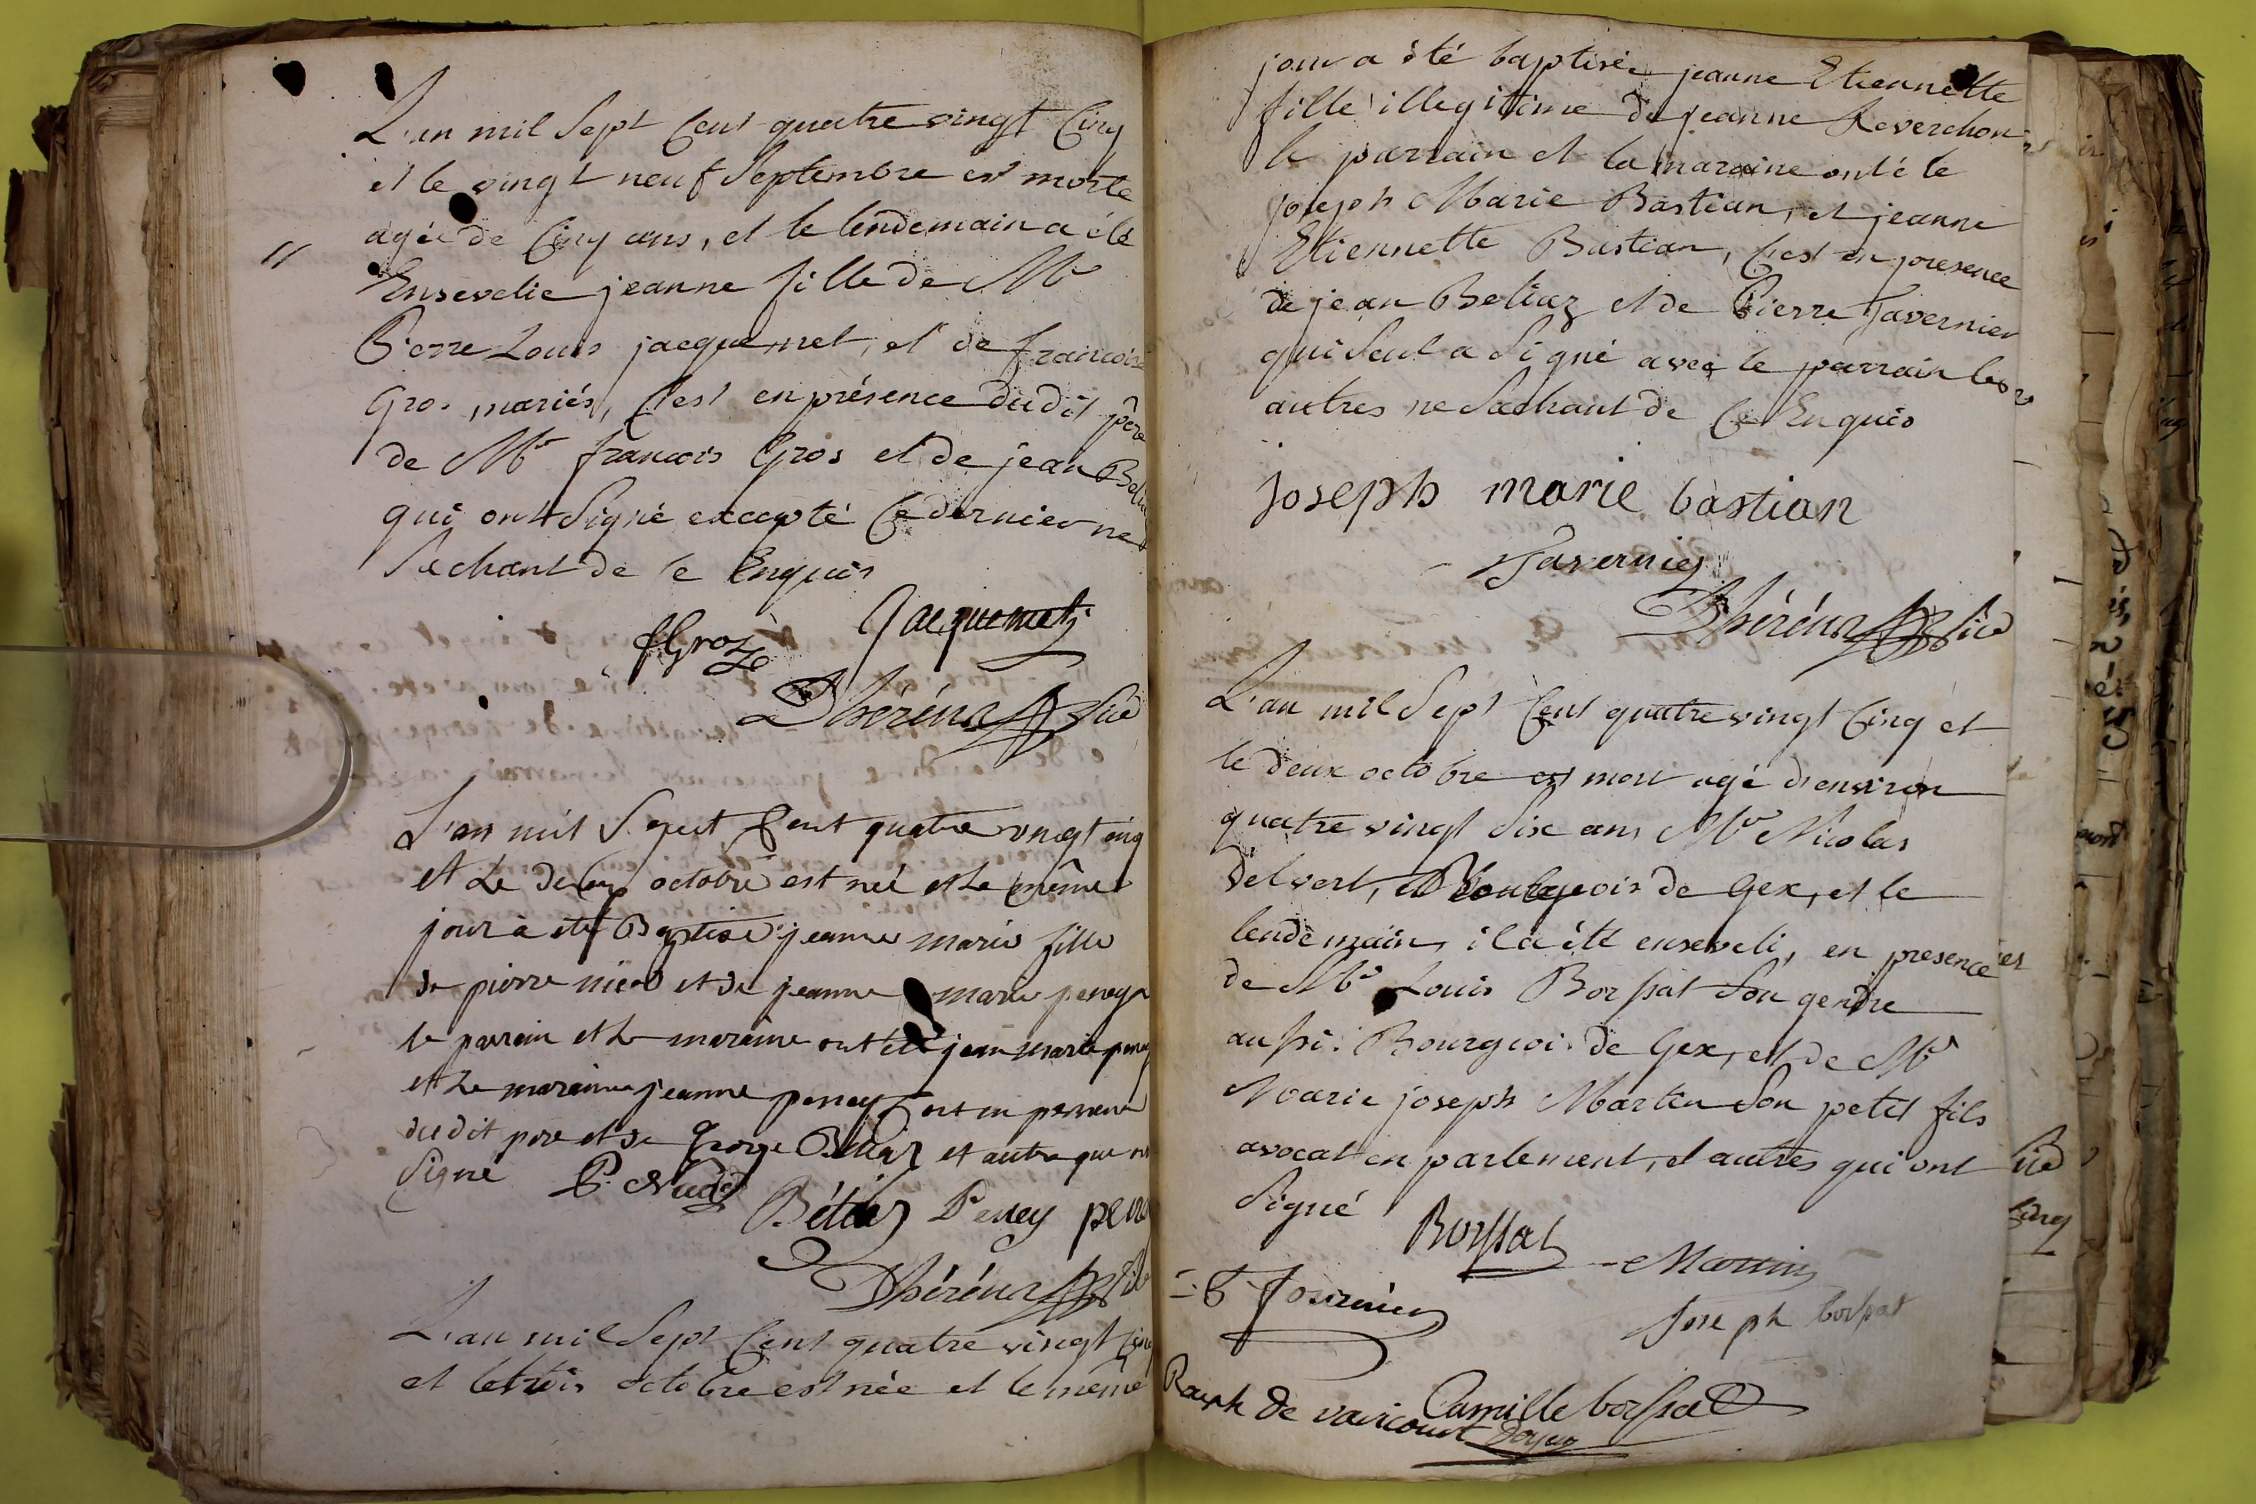 L'an mil Sept Cent quatre vingt Cinq
et le vingt neuf Septembre est morte
agée de Cinq ans, et le lendemain a été
Ensevelie jeanne fille de Mr
Pierre Louis jacquemet, et de francoise
Gros mariés, C'est en présence dudit père
de Mr francois Gros et de jean
qui ont Signé excepté Ce dernier ne
Sachant de ce Enquis
fGroz Jacquemet
Dhéréna Vic
L'an mil Sept Cent quatre vingt cinq
et Le deux octobre est né et Le même
jour à été Baptisé jeanne marie fille
de pierre nicod et de jeanne marie peney
le parrain et La maraine ont été jean marie peney
et La maraine jeanne peney C'est en presence
dudit pere et de George Bétiaz et autre que ont
Signé P. Nicod
Bétiaz Peney
Dhéréna Vic
L'an mil Sept Cent quatre vingt Cinq
et le trois octobre est née et le même
jour a été baptisée jeanne Etiennette
fille illegitime de jeanne Reverchon
le parrain et la maraine ont été le
joseph Marie Bastian, et jeanne
Etiennette Bastian, C'est en presence
de jean Betiaz et de Pierre Tavernier
qui Seul a Signé avec le parrain les
autres ne Sachant de Ce Enquis
joseph marie bastian
Tavernier
Dhéréna Vic
L'an mil Sept Cent quatre vingt Cinq et
le deux octobre est mort agé d'environ
quatre vingt Six ans Mr Nicolas
Delvert, Bourgeois de Gex, et le
lendemain, il a été enseveli, en presence
de Mr Louis Borssat Son gendre
aussi Bourgeois de Gex, et de Mr
Marie joseph Martin Son petit fils
avocat en parlement, et autres qui ont
Signé
Borssat
Martin
Fournier
Joseph borssat
Camille borssat
Rouph de varicourt Doyen